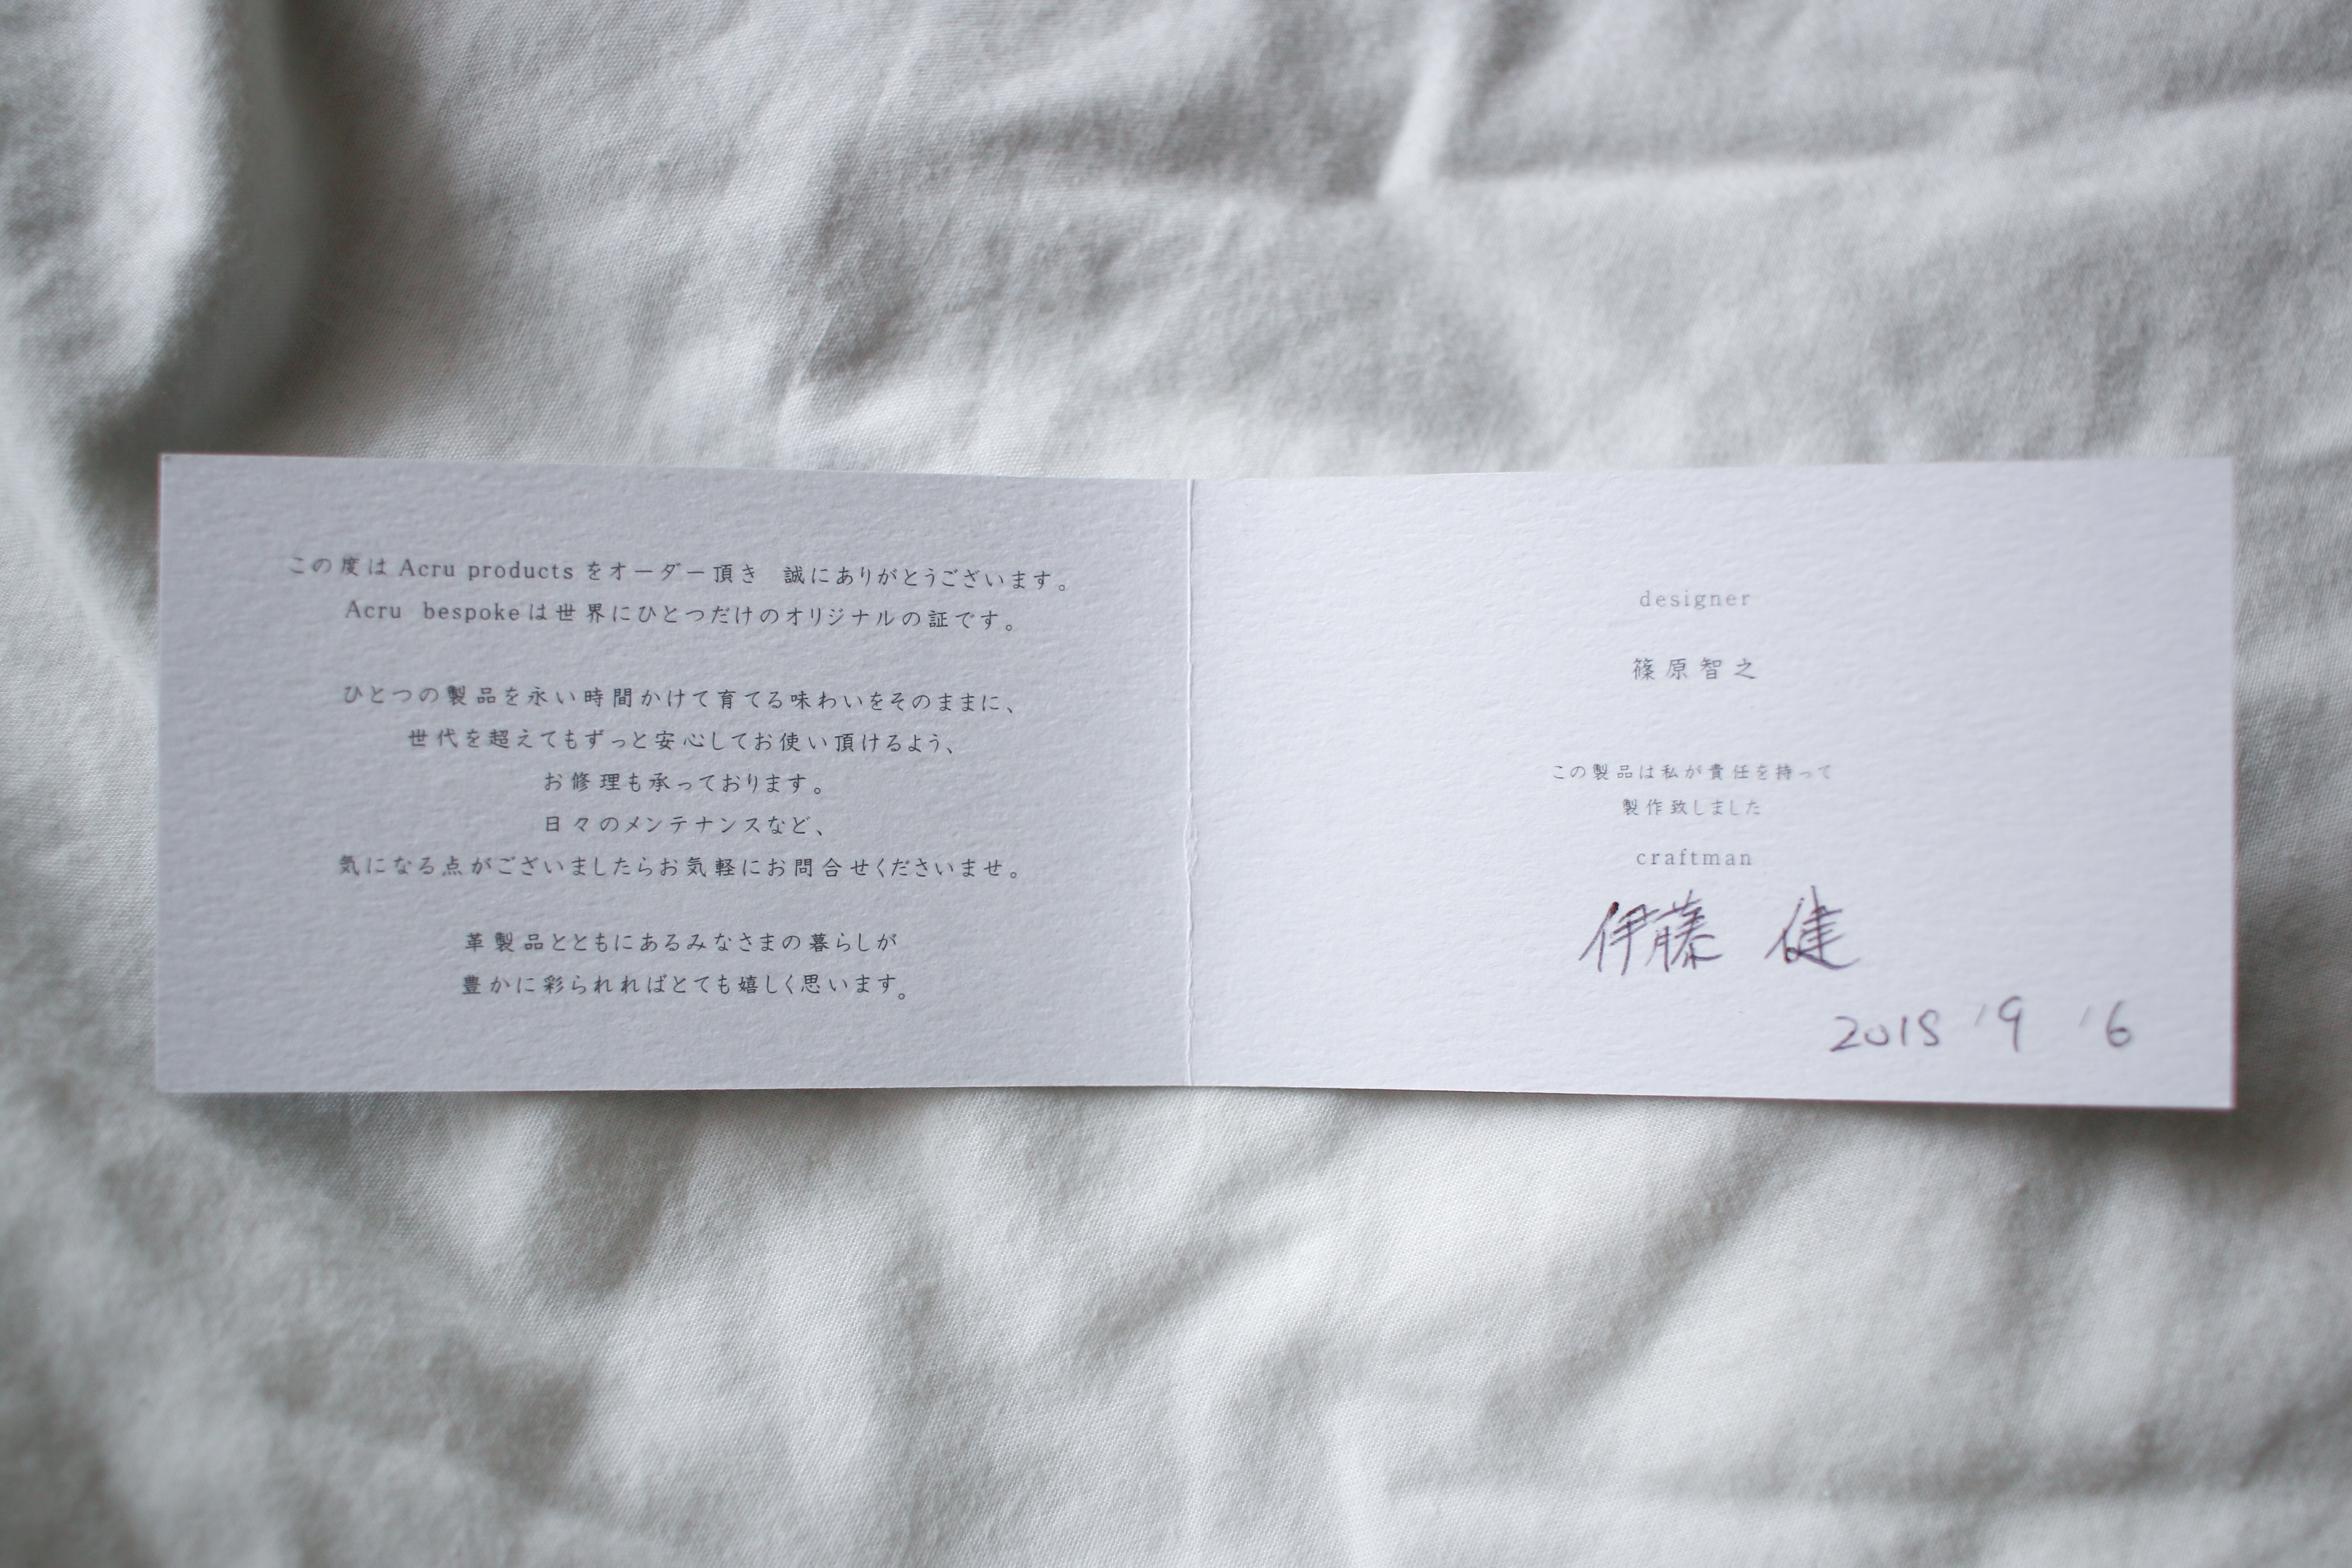 この度は Acru products をオーダー頂き 誠にありがとうございます。
Acru bespokeは世界にひとつだけのオリジナルの証です。
ひとつの製品を永い時間かけて育てる味わいをそのままに、
世代を超えてもずっと安心してお使い頂けるよう、
お修理も承っております。
日々のメンテナンスなど、
気になる点がございましたらお気軽にお問合せくださいませ。
革製品とともにあるみなさまの暮らしが
豊かに彩られればとても嬉しく思います。
designer
篠原智之
この製品は私が責任を持って
製作致しました
craftman
伊藤 健
2015 '9 '6